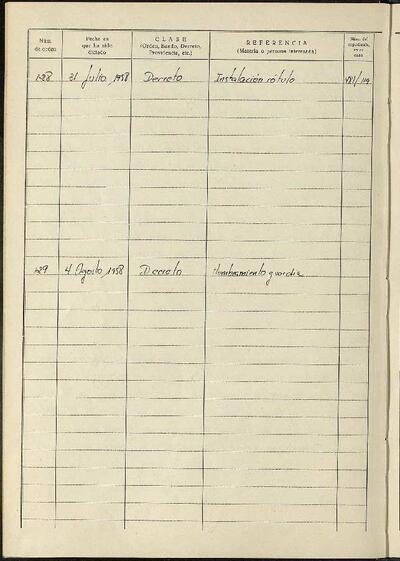 Núm. de orden
Fecha en que ha sido dictado
CLASE
(Orden, Bando, Decreto, Providencia, etc.)
REFERENCIA
(Materia o persona interesada)
Núm. del expediente, en su caso
128 31 Julio, 1958 Decreto Instalación rótulo
129 4 Agosto, 1958 Decreto Nombramiento guardia